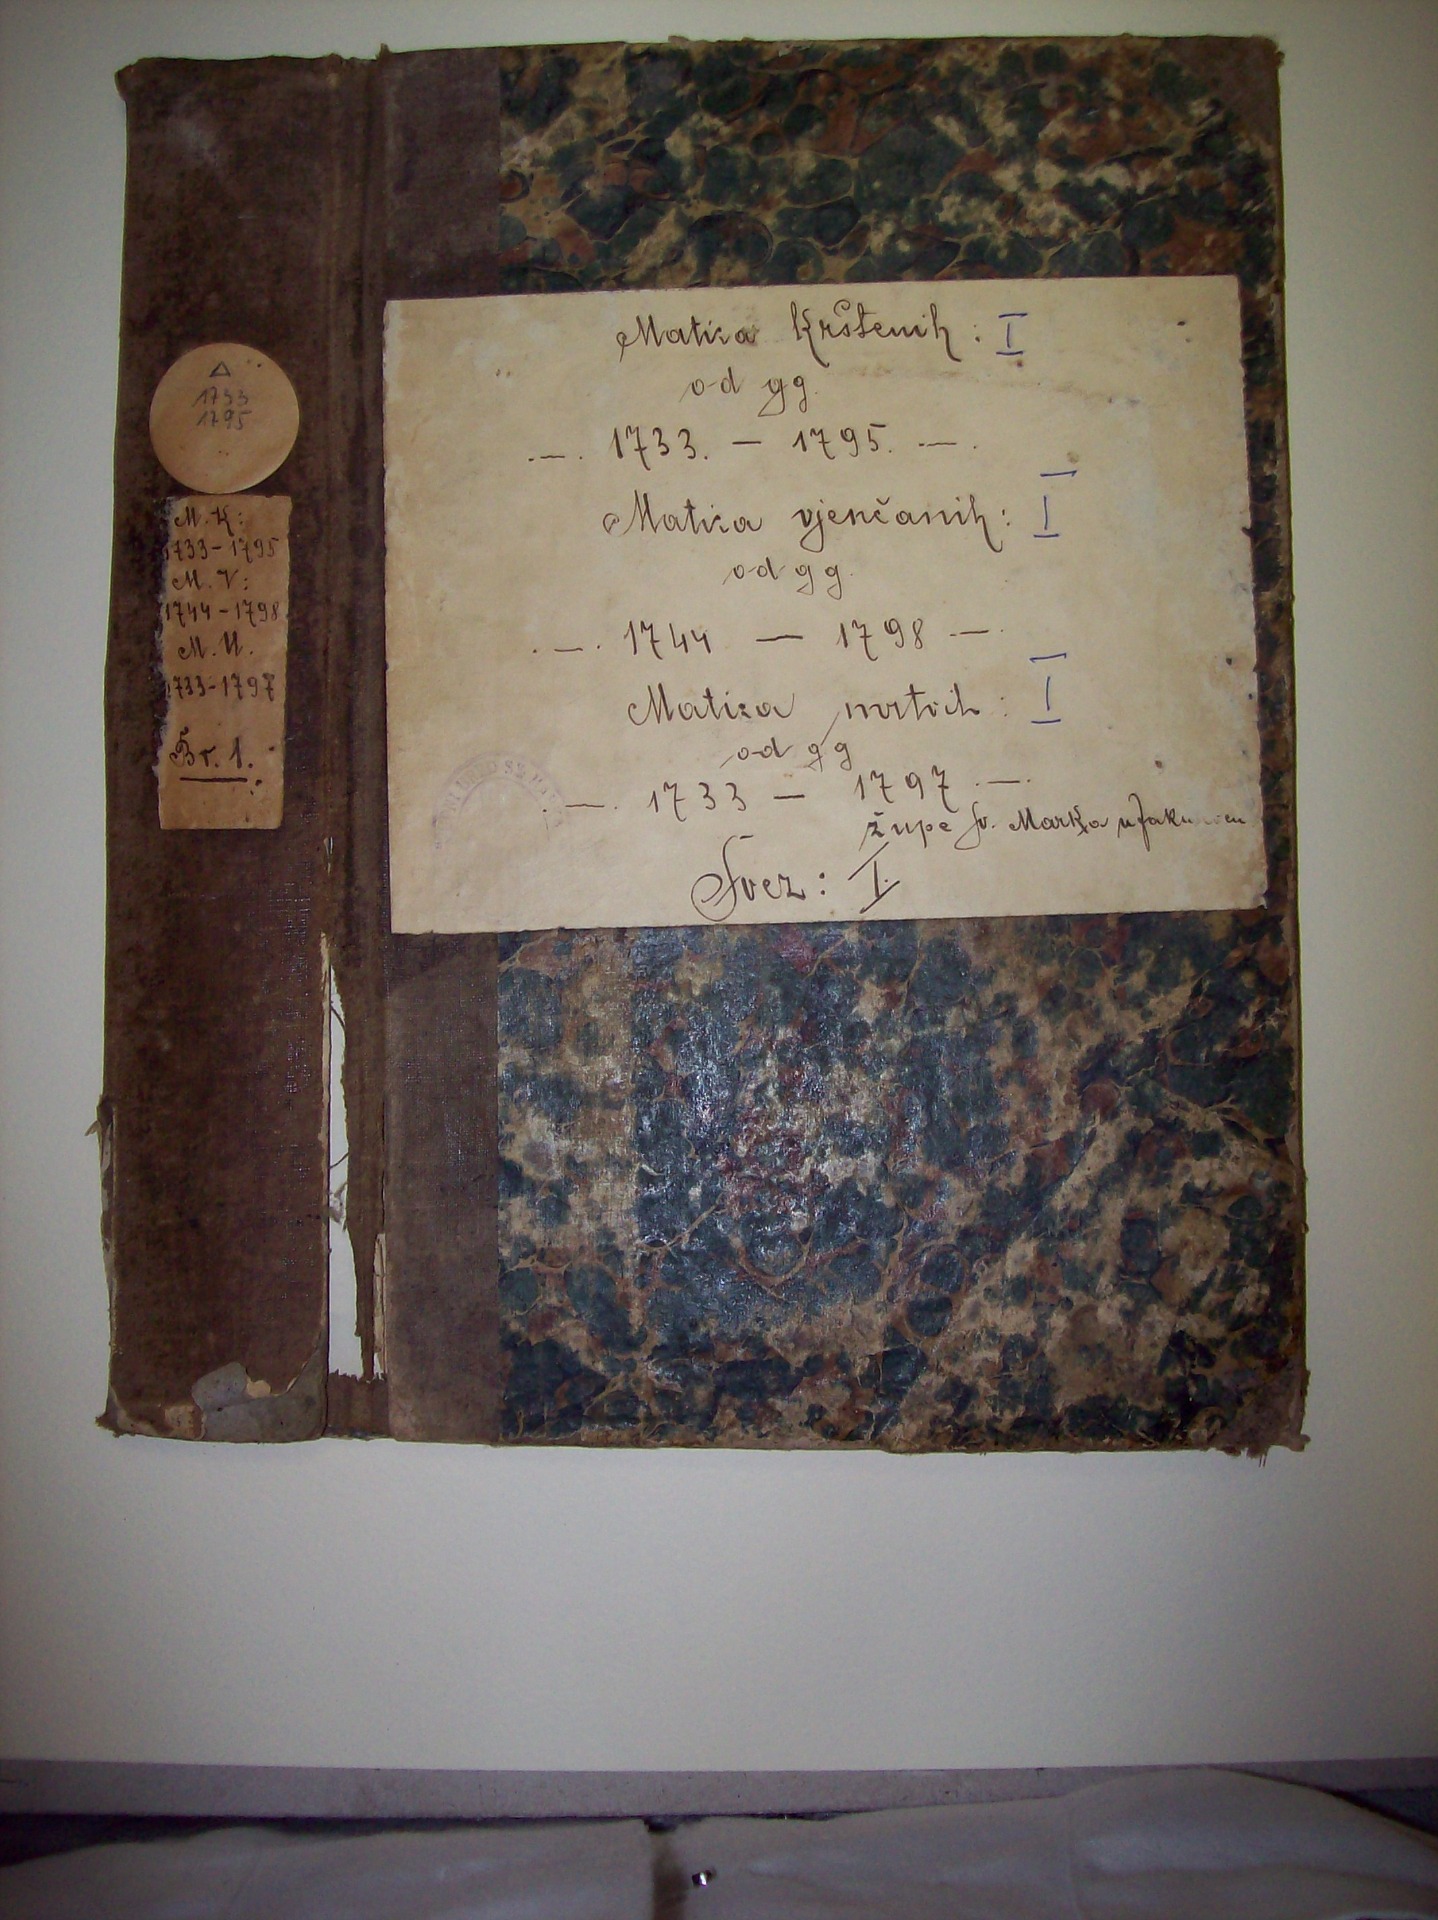 Δ
1733
1795
M. K:
1733-1795
M. V:
1744-1798
M. U.
1733-1797
Br. 1.
Matica Krštenih: I
od gg.
1733. — 1795.
Matica vjenčanih: I
od gg.
1744 — 1798
Matica mrtvih: I
od gg
1733 — 1797
župe sv. Marka u
Svez: I.